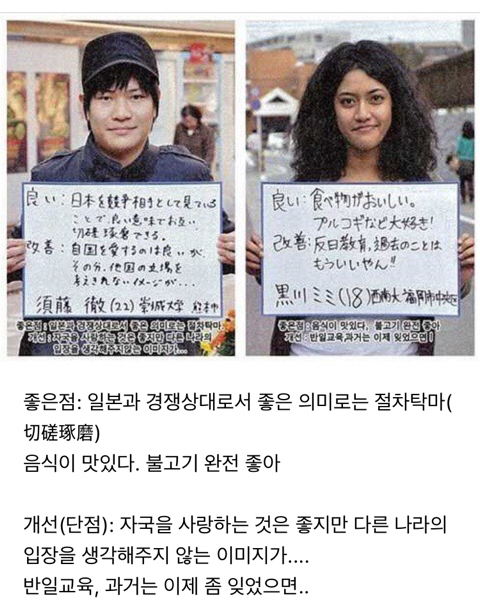 良い:日本を競争相手として見ている
ことで、良い意味でお互い
切磋琢磨できる。
改善:自国を愛するのは良いが
その分、他国の立場を
考えきれないイメージが…
須藤 徹(22) 崇城大学 熊本
좋은점:일본과 경쟁상대로서 좋은 의미로는 절차탁마
개선:자국을 사랑하는 것은 좋지만 다른 나라의
입장을 생각해주지않는 이미지가...
良い:食べ物がおいしい。
プルコギなど大好き!
改善:反日教育、過去のことは
もういいやん!!
黒川 ミミ(18) 西南大 福岡市中央区
좋은점:음식이 맛있다. 불고기 완전 좋아
개선:반일교육,과거는 이제 잊었으면!
좋은점: 일본과 경쟁상대로서 좋은 의미로는 절차탁마(
切磋琢磨)
음식이 맛있다. 불고기 완전 좋아
개선(단점): 자국을 사랑하는 것은 좋지만 다른 나라의
입장을 생각해주지 않는 이미지가....
반일교육, 과거는 이제 좀 잊었으면..